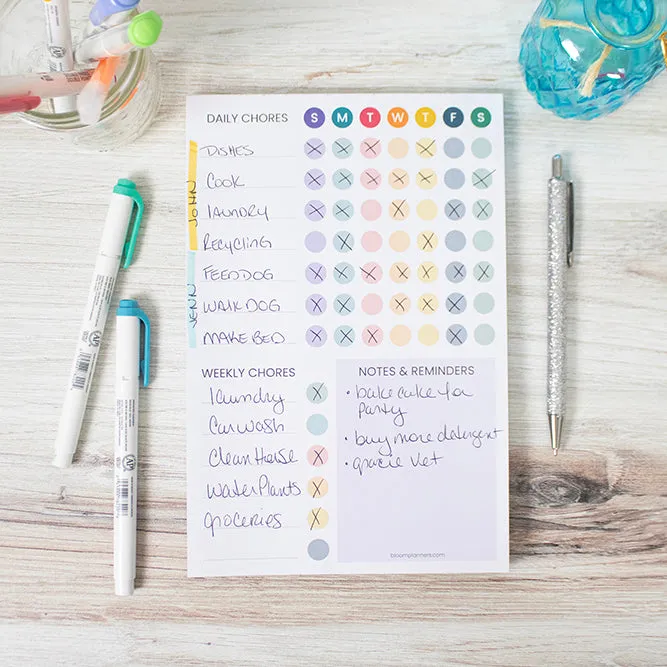 DAILY CHORES S M T W T F S
JOHN
DISHES
COOK
LAUNDRY
RECYCLING
JENN
FEED DOG
WALK DOG
MAKE BED
WEEKLY CHORES
laundry
Car wash
Clean House
Water Plants
groceries
NOTES & REMINDERS
• bake cake for
party
• buy more detergent
• gracie vet
bloomplanners.com
AP
AP